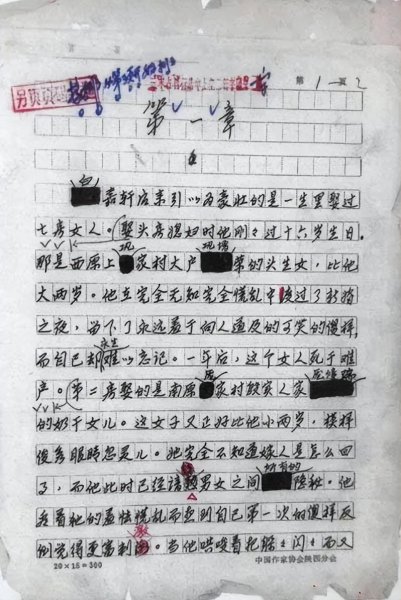 第 1 页
第一章
白嘉轩后来引以为豪壮的是一生里娶过
七房女人。娶头房媳妇时他刚々过十六岁生日。
那是西原上巩家村大户巩增荣的头生女，比他
大两岁。他在完全无知完全慌乱中度过了新婚
之夜，留下了永远羞于向人道及的可笑的傻样，
而自己却永生难以忘记。一年后，这个女人死于难
产。第二房娶的是南原庞家村殷实人家庞修瑞
的奶干女儿。这女子又正好比他小两岁，模样
俊秀眼睛忽灵儿。她完全不知道嫁人是怎么回
事，而他此时已经谙熟男女之间所有的隐秘。他
看着她的羞怯慌乱而想到自己第一次的傻样反
倒觉得更富刺激。当他哄唆着把躲々闪々而又
20×15=300
中国作家协会陕西分会